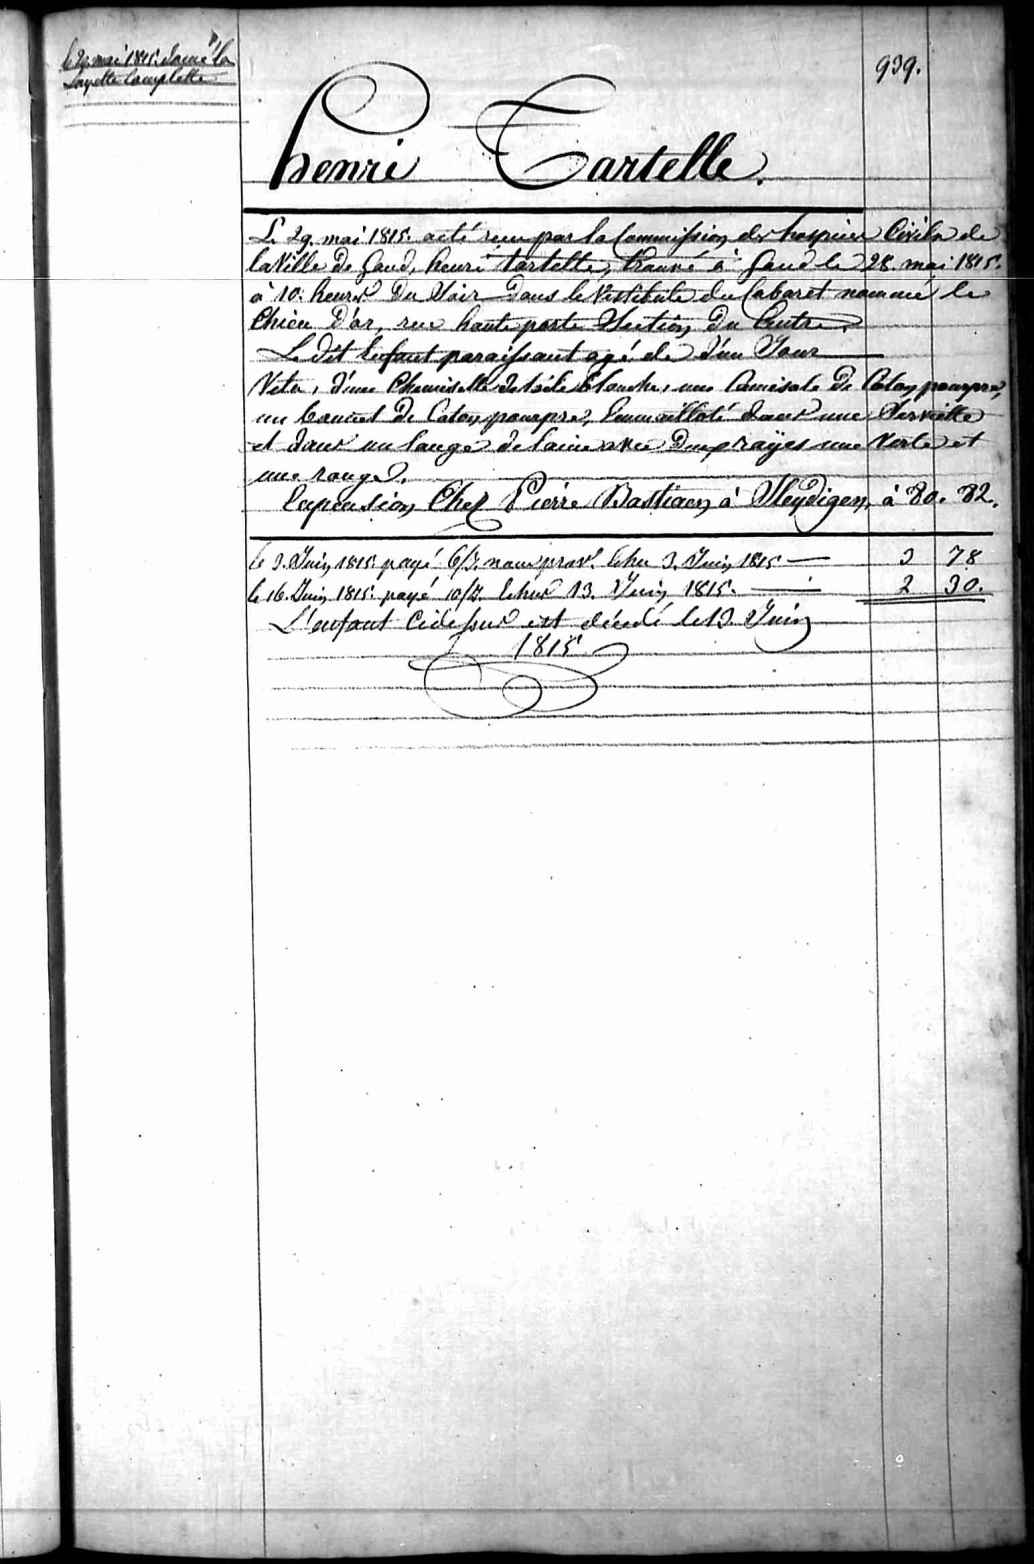 le 29 mai 1815 donné la
Layette Complette
939.
henri Tartelle.
Le 29. mai 1815. a été reçu par la Commission des hospices Civils de
la Ville de Gand, henri tartelle, trouvé à Gand le 28 mai 1815.
à 10. heures Du Soir Dans le Vestibule du Cabaret nommé le
Chien D'or, rue haute porte Section Du Centre.
Le dit Enfant paraissant agé de d'un Jour
Vetu, d'une Chemisette de toile blanche, une Camisole de Coton pourpre,
un bonnet de Coton pourpre, Emmailloté dans une Serviette
et dans un lange de laine avec Deux rayes une Verte et
une rouge.
En pension Chez Pierre Bastiaen à Sleydigen, à 80. 82.
le 3. Juin 1815 payé 6/J. nour prov.^s Echu 3. Juin 1815 — 3 78
le 16. Juin 1815. payé 10/J. Echus 13. Juin 1815. — 2 30.
L'enfant Cidessus est décédé le 13 Juin
1815